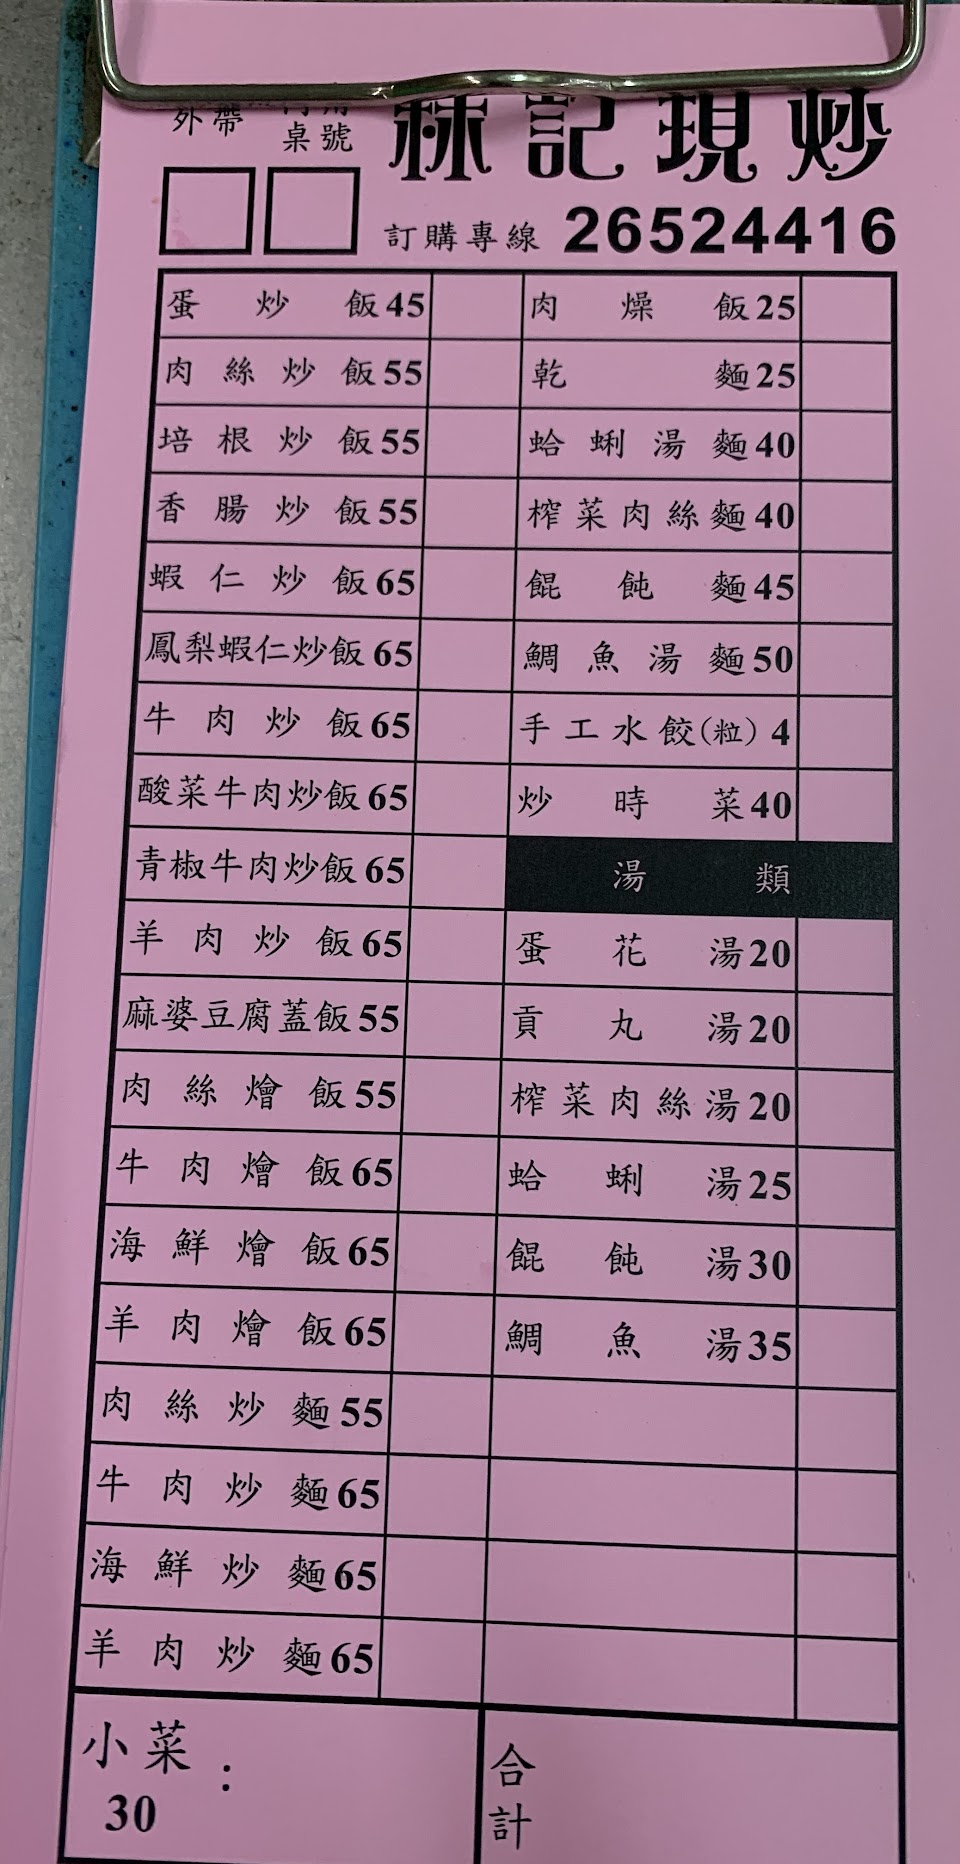 外帶
內用
桌號
記現炒
訂購專線 26524416
蛋炒飯45
肉絲炒飯55
培根炒飯55
香腸炒飯55
蝦仁炒飯65
鳳梨蝦仁炒飯65
牛肉炒飯65
酸菜牛肉炒飯65
青椒牛肉炒飯65
羊肉炒飯65
麻婆豆腐蓋飯55
肉絲燴飯55
牛肉燴飯65
海鮮燴飯65
羊肉燴飯65
肉絲炒麵55
牛肉炒麵65
海鮮炒麵65
羊肉炒麵65
肉燥飯25
乾麵25
蛤蜊湯麵40
榨菜肉絲麵40
餛飩麵45
鯛魚湯麵50
手工水餃(粒) 4
炒時菜40
湯類
蛋花湯20
貢丸湯20
榨菜肉絲湯20
蛤蜊湯25
餛飩湯30
鯛魚湯35
小菜：
30
合
計